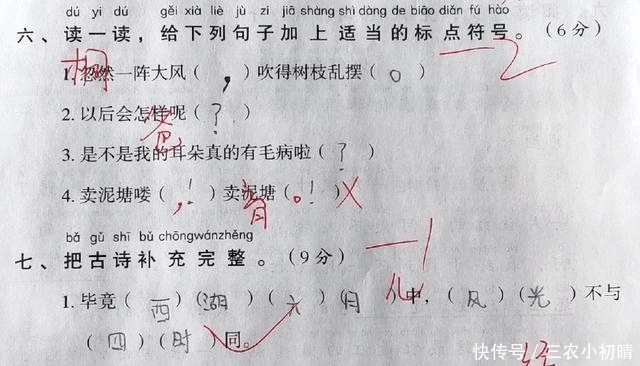 dú yi dú gěi xià liè jù zi jiā shàng shì dàng de biāo diǎn fú hào
六、读一读，给下列句子加上适当的标点符号。（6分） 一2
1.忽然一阵大风（，）吹得树枝乱摆（。）
2.以后会怎样呢（？）
3.是不是我的耳朵真的有毛病啦（？）
4.卖泥塘喽（，！）卖泥塘（。！）X
bǎ gǔ shī bǔ chōng wán zhěng
七、把古诗补充完整。（9分） 一1
1.毕竟（西）（湖）（六）（月）中，（风）（光）不与
（四）（时）同。
快传号/三农小初晴